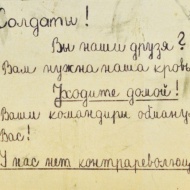 Солдати!
Вы наши друзя?
Вам нужна наша кровь
Уходите домой!
Ваши командири обману
Вас!
У нас нет контрареволюц